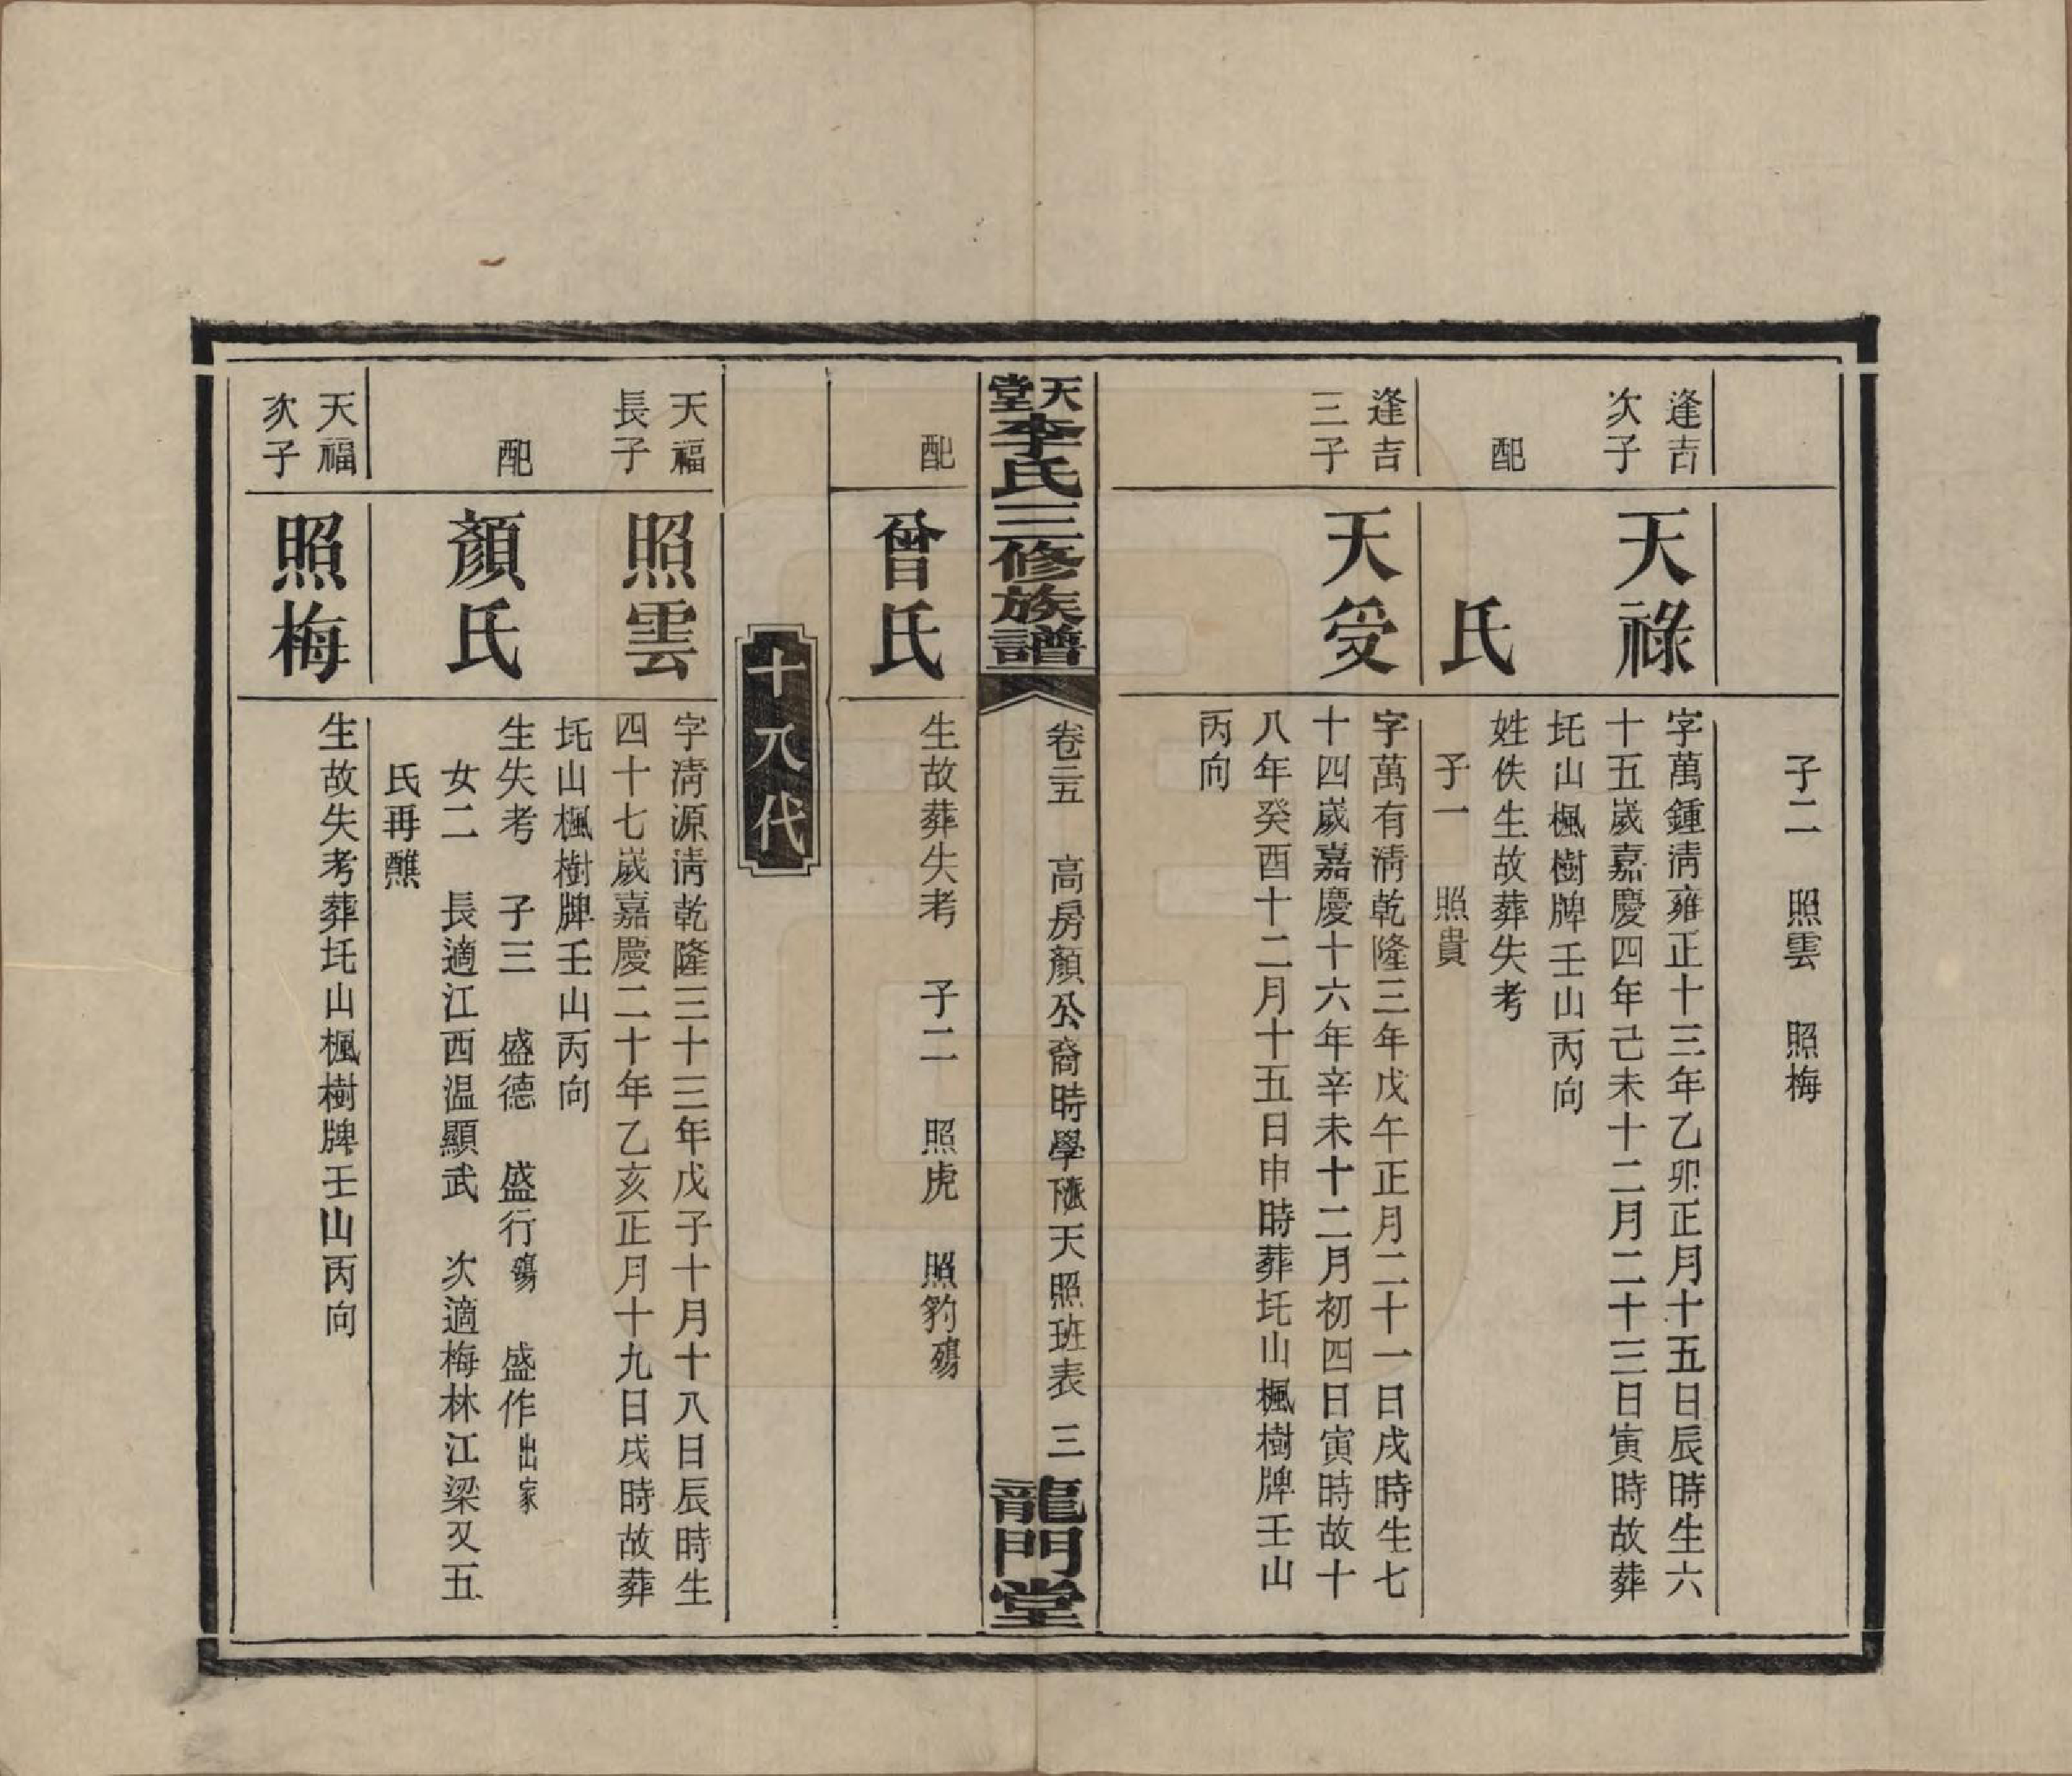 子二　照雲　照梅
逢吉
次子
天祿
字萬鍾淸雍正十三年乙卯正月十五日辰時生六
十五歲嘉慶四年己未十二月二十三日寅時故葬
圫山楓樹牌壬山丙向
配
氏
姓佚生故葬失考
子一　照貴
逢吉
三子
天受
字萬有淸乾隆三年戊午正月二十一日戌時生七
十四歲嘉慶十六年辛未十二月初四日寅時故十
八年癸酉十二月十五日申時葬圫山楓樹牌壬山
丙向
天堂李氏三修族譜
卷二五　高房顏公裔時學 天照班表　三
龍門堂
配
曾氏
生故葬失考　子二　照虎　照豹殤
十八代
天福
長子
照雲
字淸源淸乾隆三十三年戊子十月十八日辰時生
四十七歲嘉慶二十年乙亥正月十九日戌時故葬
圫山楓樹牌壬山丙向
配
顏氏
生失考　子三　盛德　盛行殤　盛作出家
女二　長適江西温顯武　次適梅林江梁又五
氏再醮
天福
次子
照梅
生故失考葬圫山楓樹牌壬山丙向